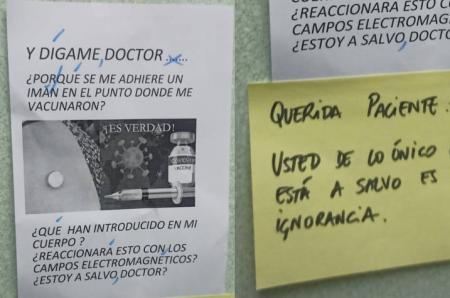 Y DÍGAME, DOCTOR ......
¿PORQUÉ SE ME ADHIERE UN
IMÁN EN EL PUNTO DONDE ME
VACUNARON?
¡ES VERDAD!
VACCINE
¿QUÉ HAN INTRODUCIDO EN MI
CUERPO ?
¿REACCIONARÁ ESTO CON LOS
CAMPOS ELECTROMAGNÉTICOS?
¿ESTOY A SALVO, DOCTOR?
¿REACCIONARA ESTO CO
CAMPOS ELECTROMAG
¿ESTOY A SALVO, DOCTO
QUERIDA PACIENTE:
USTED DE LO ÚNICO
ESTÁ A SALVO ES
IGNORANCIA.